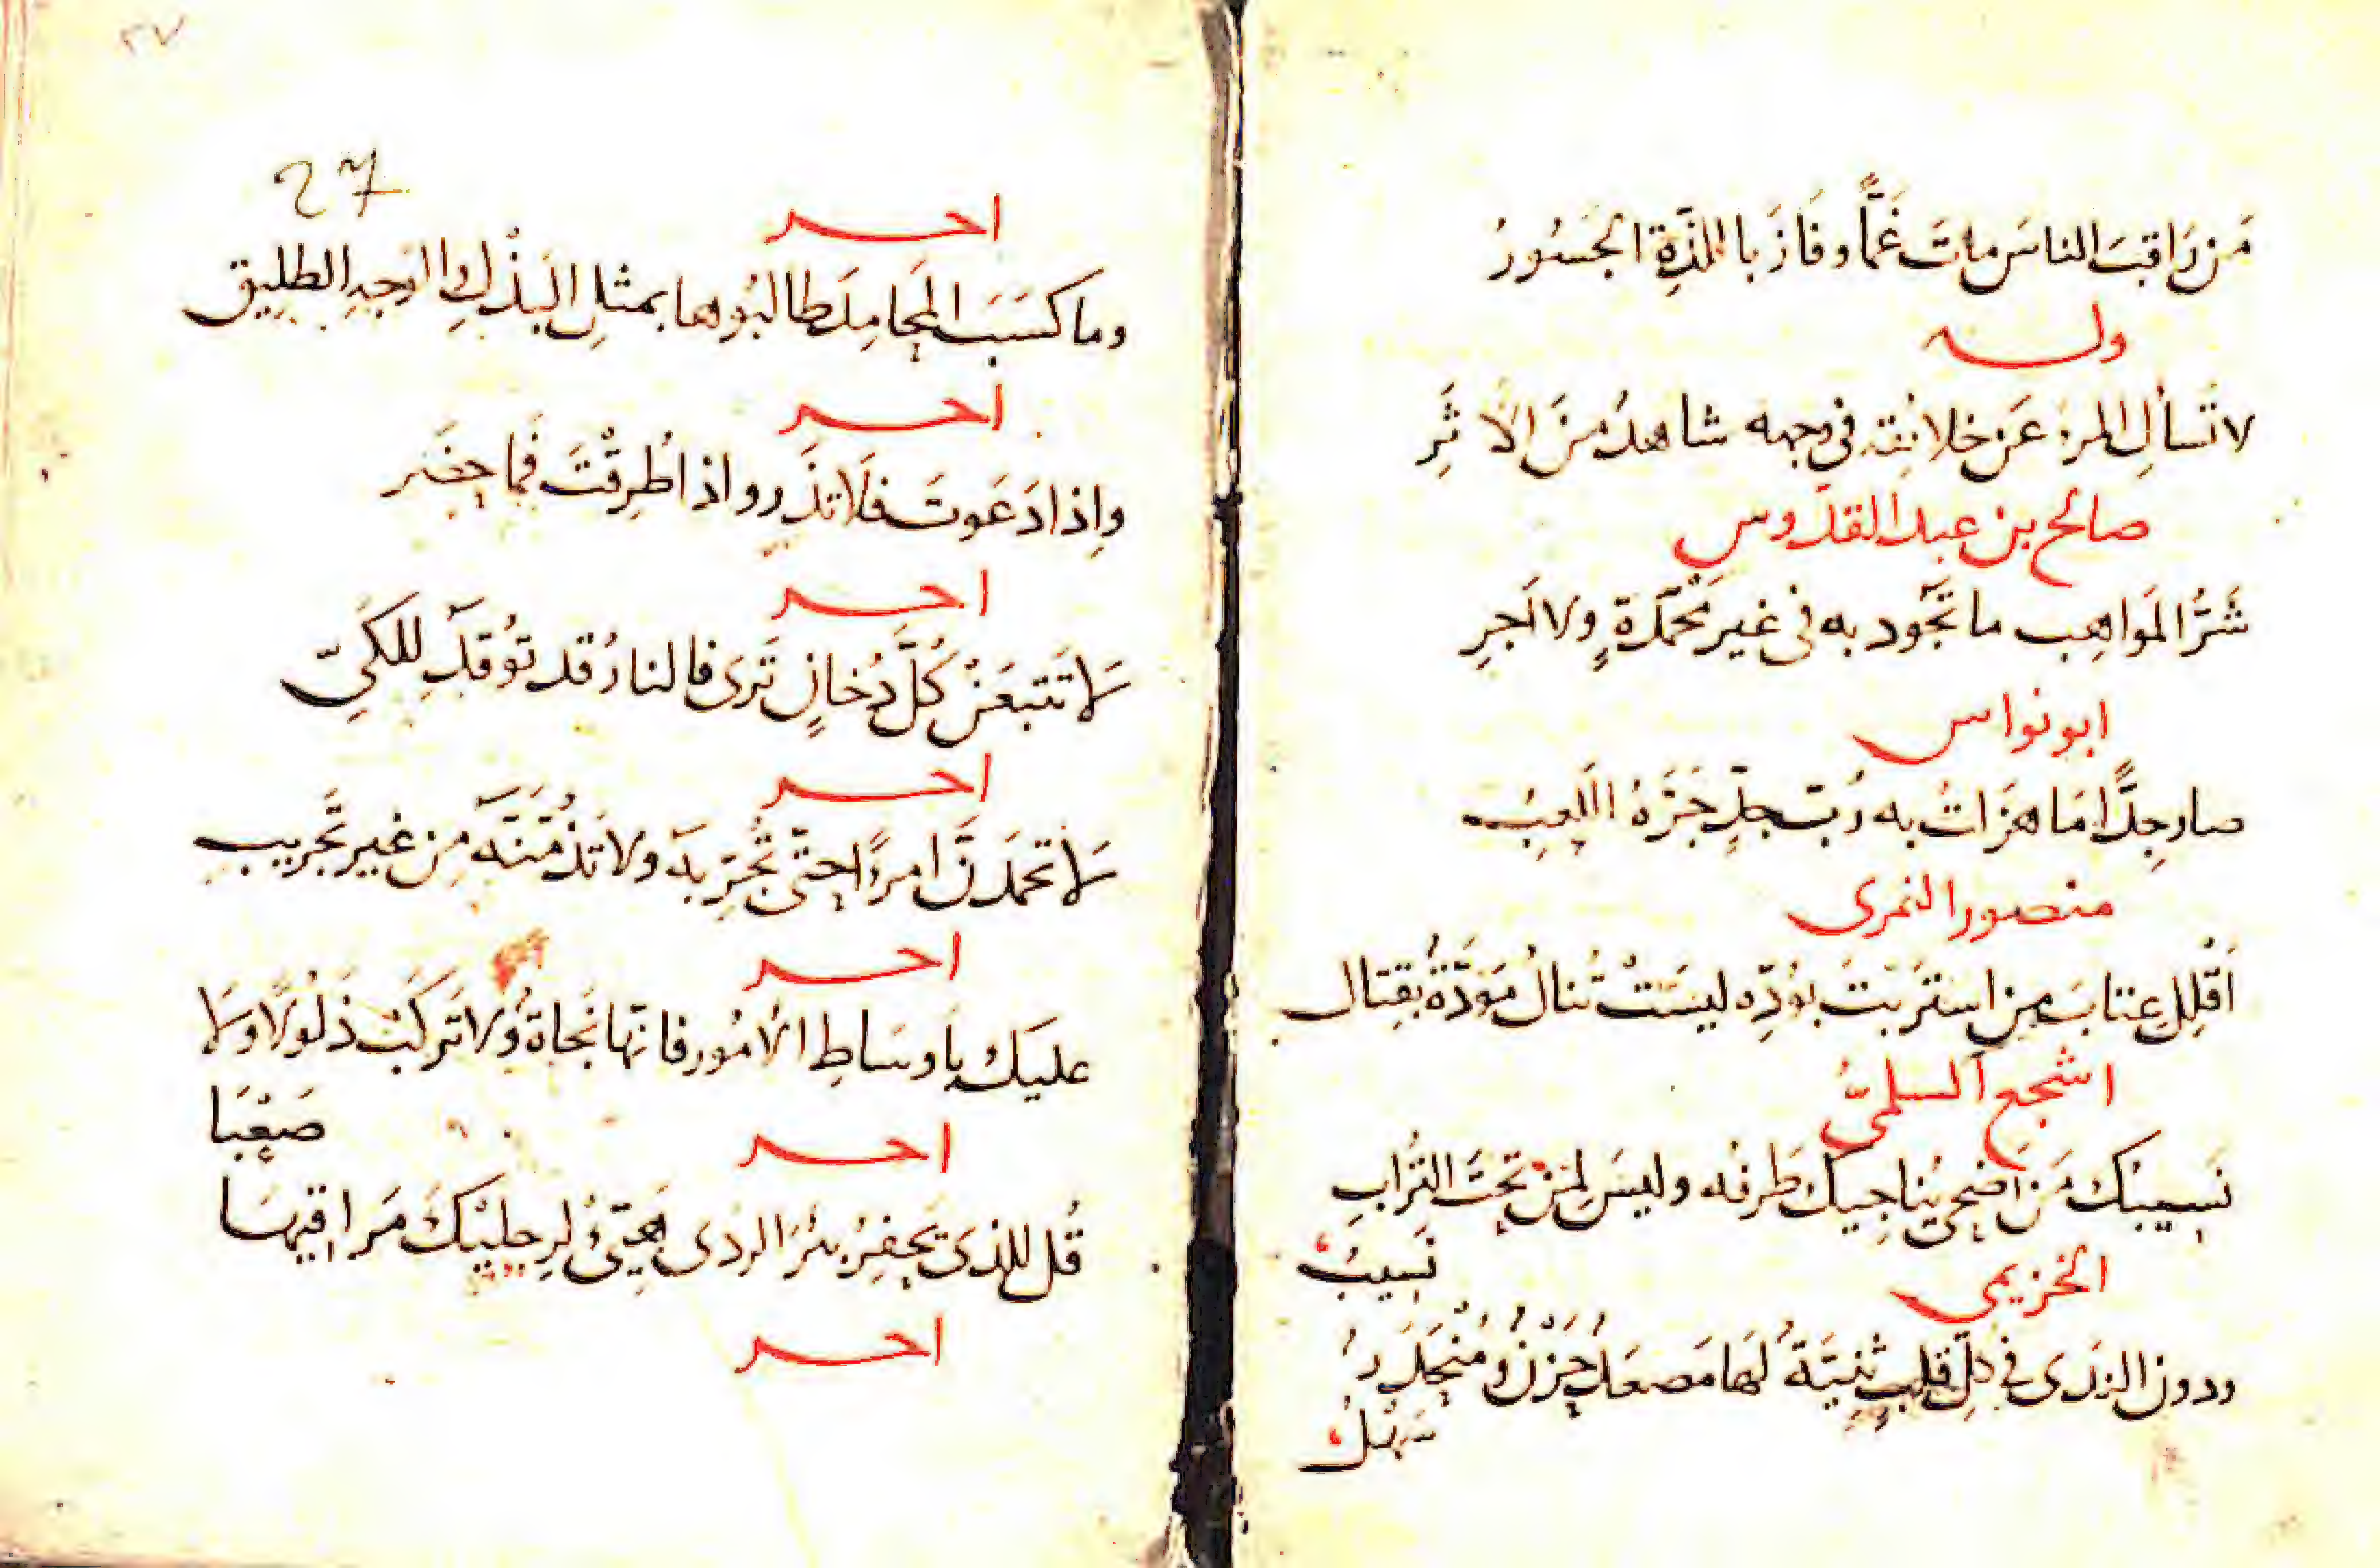 مَن رَاقبَ الناسَ ماتَ غَمًّا وفَازَ باللذَّةِ الجَسُورُ
وله
لا تَسألِ المرءَ عَن خلائقِه في وجهه شاهدٌ منَ الأثَرِ
صالح بن عبد القدّوس
شَرُّ المَواهِب ما تَجُود به في غير مَحْمَدَةٍ ولا أَجرِ
ابو نواس
صار جِدًّا مَا هَزَاتُ به رُبّ جِدٍّ جَرَّهُ اللَّعِبُ
منصور النمرى
أَقْلِل عِتابَ مِن استَربْتَ بوُدِّه ليسَتْ تُنالُ مَوَدَّةٌ بقِتال
اشجع السلمىّ
نَسِيبُكَ مَن اضحى يُناجيكَ طَرفُه وليسَ لمَن تحتَ التُرابِ
نَسيبُ
الخزيمى
ودون الندى في كلِّ قلبٍ ثَنِيَّةٌ لَها مَصعَدٌ حَزْنٌ ومُنْحَدَرٌ
سَهْلُ
٢٧
27
اخر
وما كسَبَ المَحامِدَ طالبُوها بمثلِ البَذْلِ والوَجهِ الطلِيق
اخر
وإذا دَعَوتَ فلَا تذَر وإذا طُرِقْتَ فَما حضَر
اخر
لا تَتبعَنْ كُلَّ دُخانٍ تَرَى فالنارُ قد تُوقَدُ لِلكَيِّ
اخر
لا تحمَدَنَّ امرءًا حتّى تُجَرِّبَه ولا تذُمَّنَّه مِن غير تَجريبِ
اخر
عليَكَ باَوسَاطِ الأمُور فانّها نَجاةٌ ولا تَركَبْ ذَلُولًا ولَا
صَعْبَا
اخر
قُل للذى يَحفِرُ بئرَ الردى هَيِّئْ لرِجليْكَ مَراقيهَا
اخر